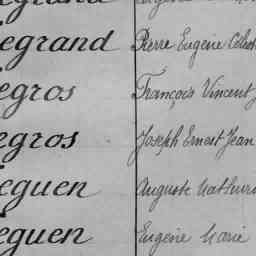 egrand Pierre Eugène
egros François Vincent
egros Joseph Ernest Jean
eguen Auguste Mathurin
eguen Eugène Marie